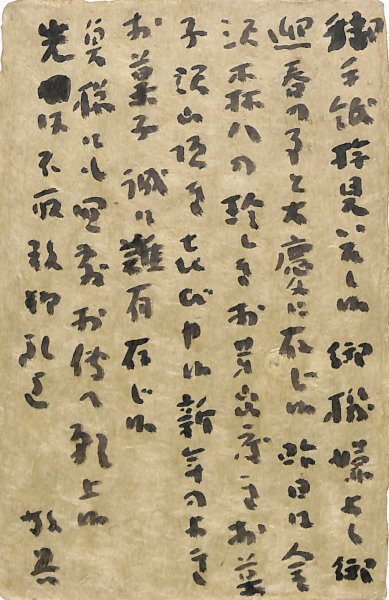 御手紙拝見いたし候 御機嫌よく御
迎春の事と大慶に存じ候 昨日は金
沢森八の珍しきお芽出度きお菓
子沢山頂き び申候 新年のよき
お菓子 誠に難有存じ候
奥様にも宜敷お伝へ願上候
先は不取敢御礼迄 敬具